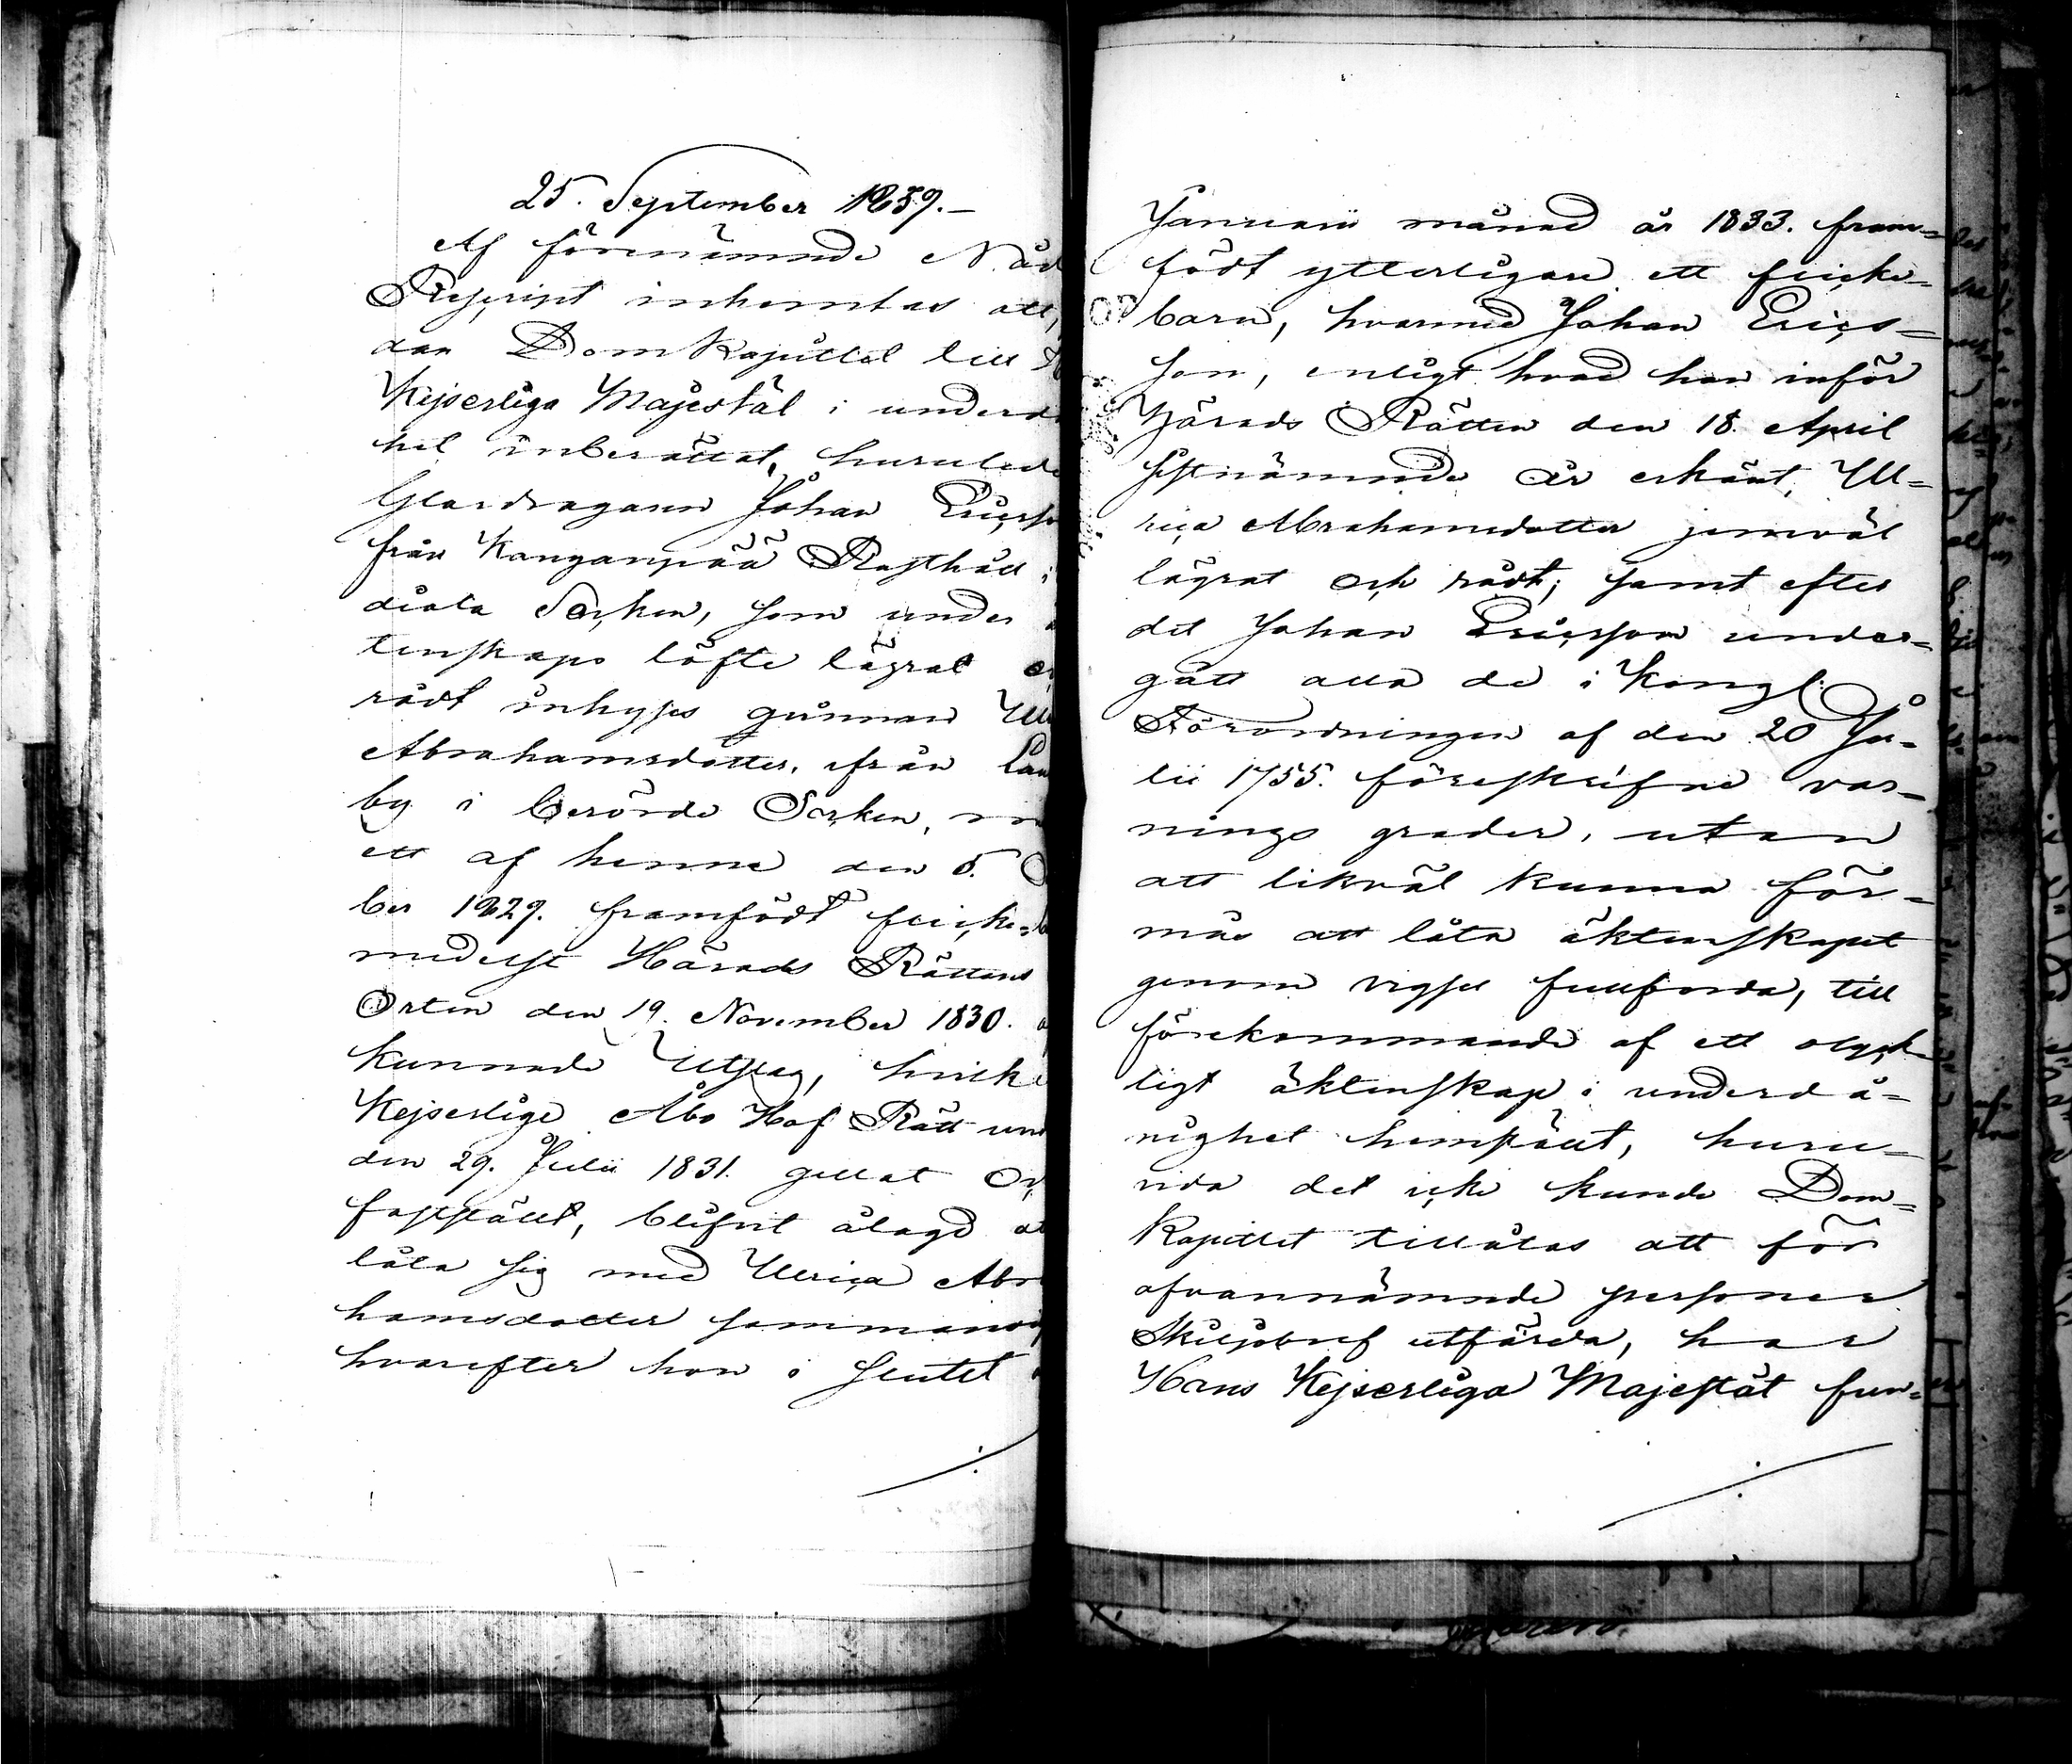 25. September 1839.—
Af förenämnde Nåd
Rescript inhemtas att,
dan DomKapittel till H
Kejserliga Majestät i underd
het inberättat, huruled
Gardragaren Johan Ericsso
från Kanganpää Rusthåll i
diala Socken, som under
tenskaps löfte lägrat oc
rådt inhyses qvinnan Ull
Abrahamsdotter, ifrån Lau
by i berörde Socken, m
ett af henne den 5. O
ber 1829. framfödt flicke-b
medelst Härads Rättens
Orten den 19. November 1830. a
kunnade Utslag, hvilk
Kejserlige Åbo Hof Rätt un
den 29. Julii 1831. gillat oc
fastställt, blifvit ålagd at
låta sig med Ulrica Abra
hamsdotter sammanvig
hvarefter hon i slutet
Januarii månad år 1833. fram-
födt ytterligare ett flicke-
barn, hvarmed Johan Erics-
son, enligt hvad han inför
Härads Rätten den 18. April
sistnämnde år erkänt, Ull-
rica Abrahamsdotter jemväl
lägrat och rådt; samt efter
det Johan Ericsson under-
gått alla de i Kongl:
Förordningen af den 20 Ju-
lii 1755. föreskrifne var-
nings grader, utan
att likväl kunna för-
mås att låta äktenskapet
genom vigsel fullborda, till
förekommande af ett olyck-
ligt äktenskap i underdå-
nighet hemställt, huru-
vida det icke kunde Dom-
Kapitlet tillåtas att för
ofvannämnde personer
Skiljobref utfärda, har
Hans Kejserliga Majestät fun-